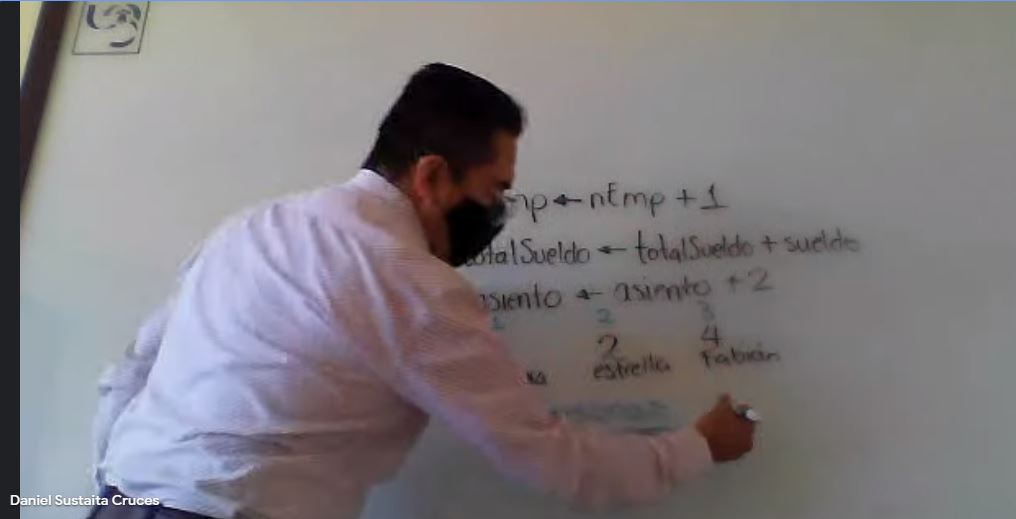 mp ← nEmp + 1
totalSueldo ← totalSueldo + sueldo
asiento ← asiento + 2
1 2 3
2 4
estrella Fabian
Daniel Sustaita Cruces